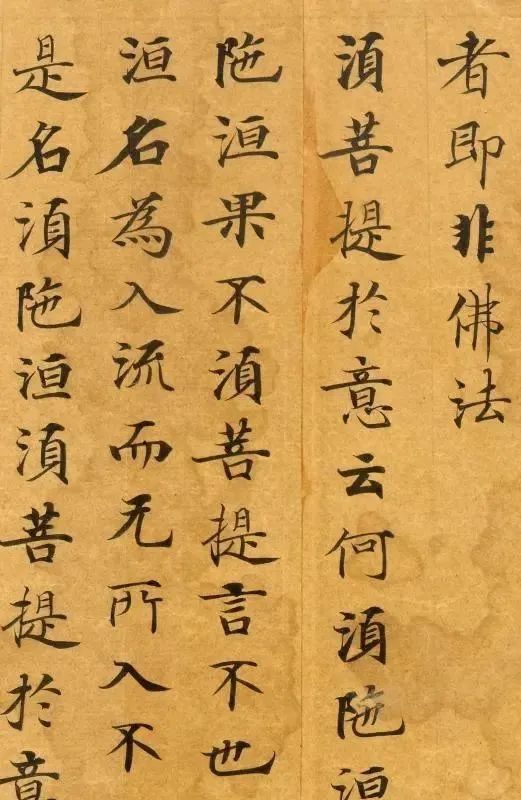 者即非佛法
湏菩提於意云何湏陁洹
陁洹果不湏菩提言不也
洹名為入流而无所入不
是名湏陁洹湏菩提於意